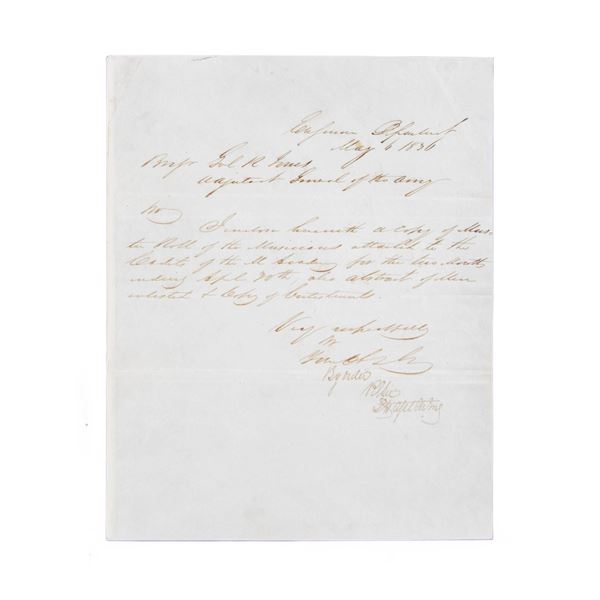 May 6 1836
Col R Jones
Adjutant General of the Army
Sir
I enclose herewith a copy of Mus-
ter Roll of the Musicians attached to the
Cadets of the M Academy for the two Months
ending April 30th, also abstract of Men
enlisted & Copy of Enlistments.
Very respectfully
Yr
By order